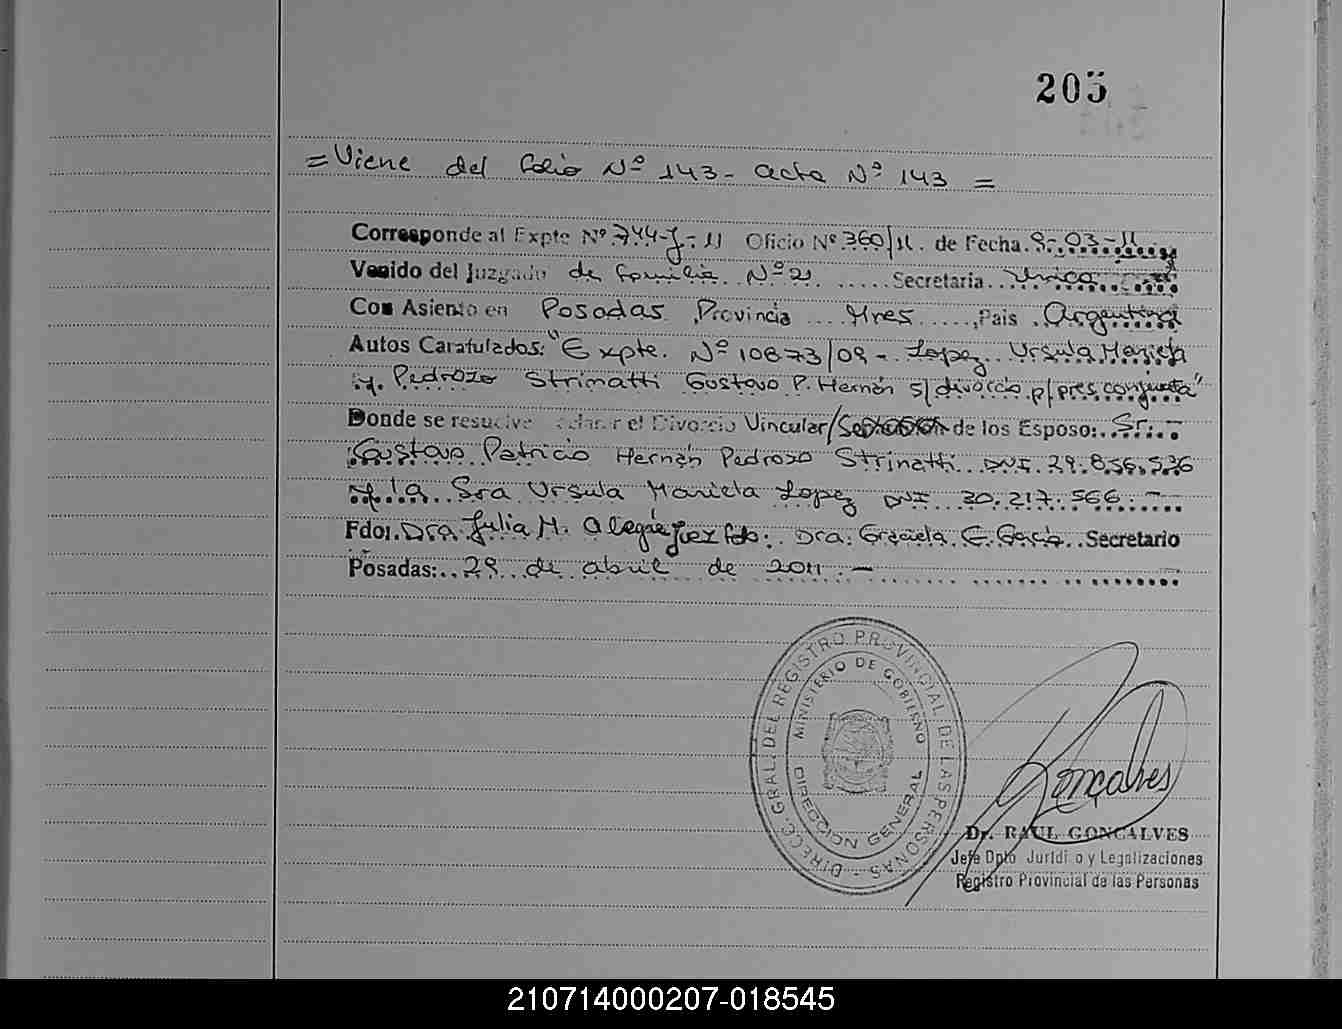 205
= Viene del folio Nº 143 - acta Nº 143 =
Corresponde al Expte Nº 744-J-11 Oficio Nº 360/11. de Fecha 9-03-11
Venido del Juzgado de Familia Nº 21 Secretaria Unica
Con Asiento en Posadas Provincia Mnes, Pais Argentina
Autos Caratulados: "Expte. Nº 10873/09 - Lopez Ursula Mariela
y. Pedrozo Strinatti Gustavo P. Hernán s/ divorcio p/ pres. conjunta"
Donde se resuelve el Divorcio Vincular/ de los Esposo: Sr. -
Gustavo Patricio Hernán Pedrozo Strinatti DNI. 29.856.536
y la Sra Ursula Mariela Lopez DNI 30.217.566. -
Fdo. Dra. Julia M. Alegre Juez fdo: Dra. Graciela E. Garcia Secretario
Posadas: 29 de abril de 2011. -
DIRECC. GRAL. DEL REGISTRO PROVINCIAL DE LAS PERSONAS -
MINISTERIO DE GOBIERNO
DIRECCION GENERAL
Goncalves
Dr. RAUL GONCALVES
Jefe Dpto Juridi o y Legalizaciones
Registro Provincial de las Personas
210714000207-018545